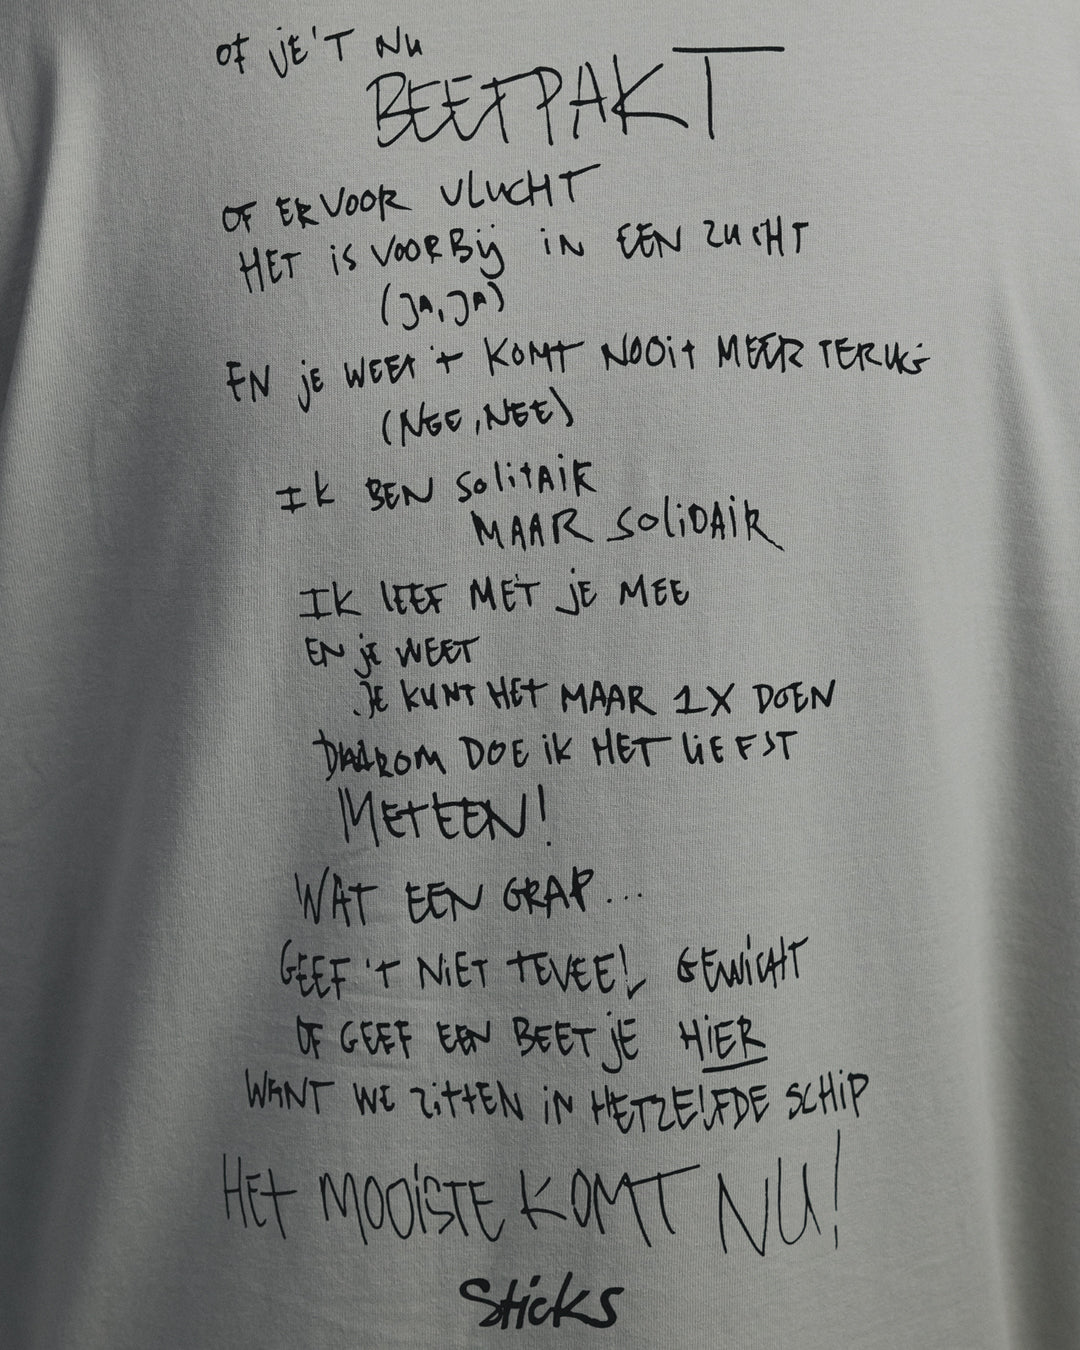 OF JE'T NU
BEETPAKT
OF ERVOOR VLUCHT
HET iS VOORBIJ iN EEN ZUCHT
(JA, JA)
EN JE WEET 't KOMT NOOit MEER TERUG
(NEE, NEE)
IK BEN SOLitAiR
MAAR SOLiDAiR
IK LEEF MET JE MEE
EN JE WEET
JE KUNT HET MAAR 1X DOEN
DAAROM DOE iK HET LiEFST
METEEN!
WAT EEN GRAP...
GEEF 't NiET TEVEEL GEWiCHT
OF GEEF EEN BEETJE HiER
WANT WE ZiTTEN iN HETZELFDE SCHiP
HET MOOiSTE KOMT NU!
Sticks